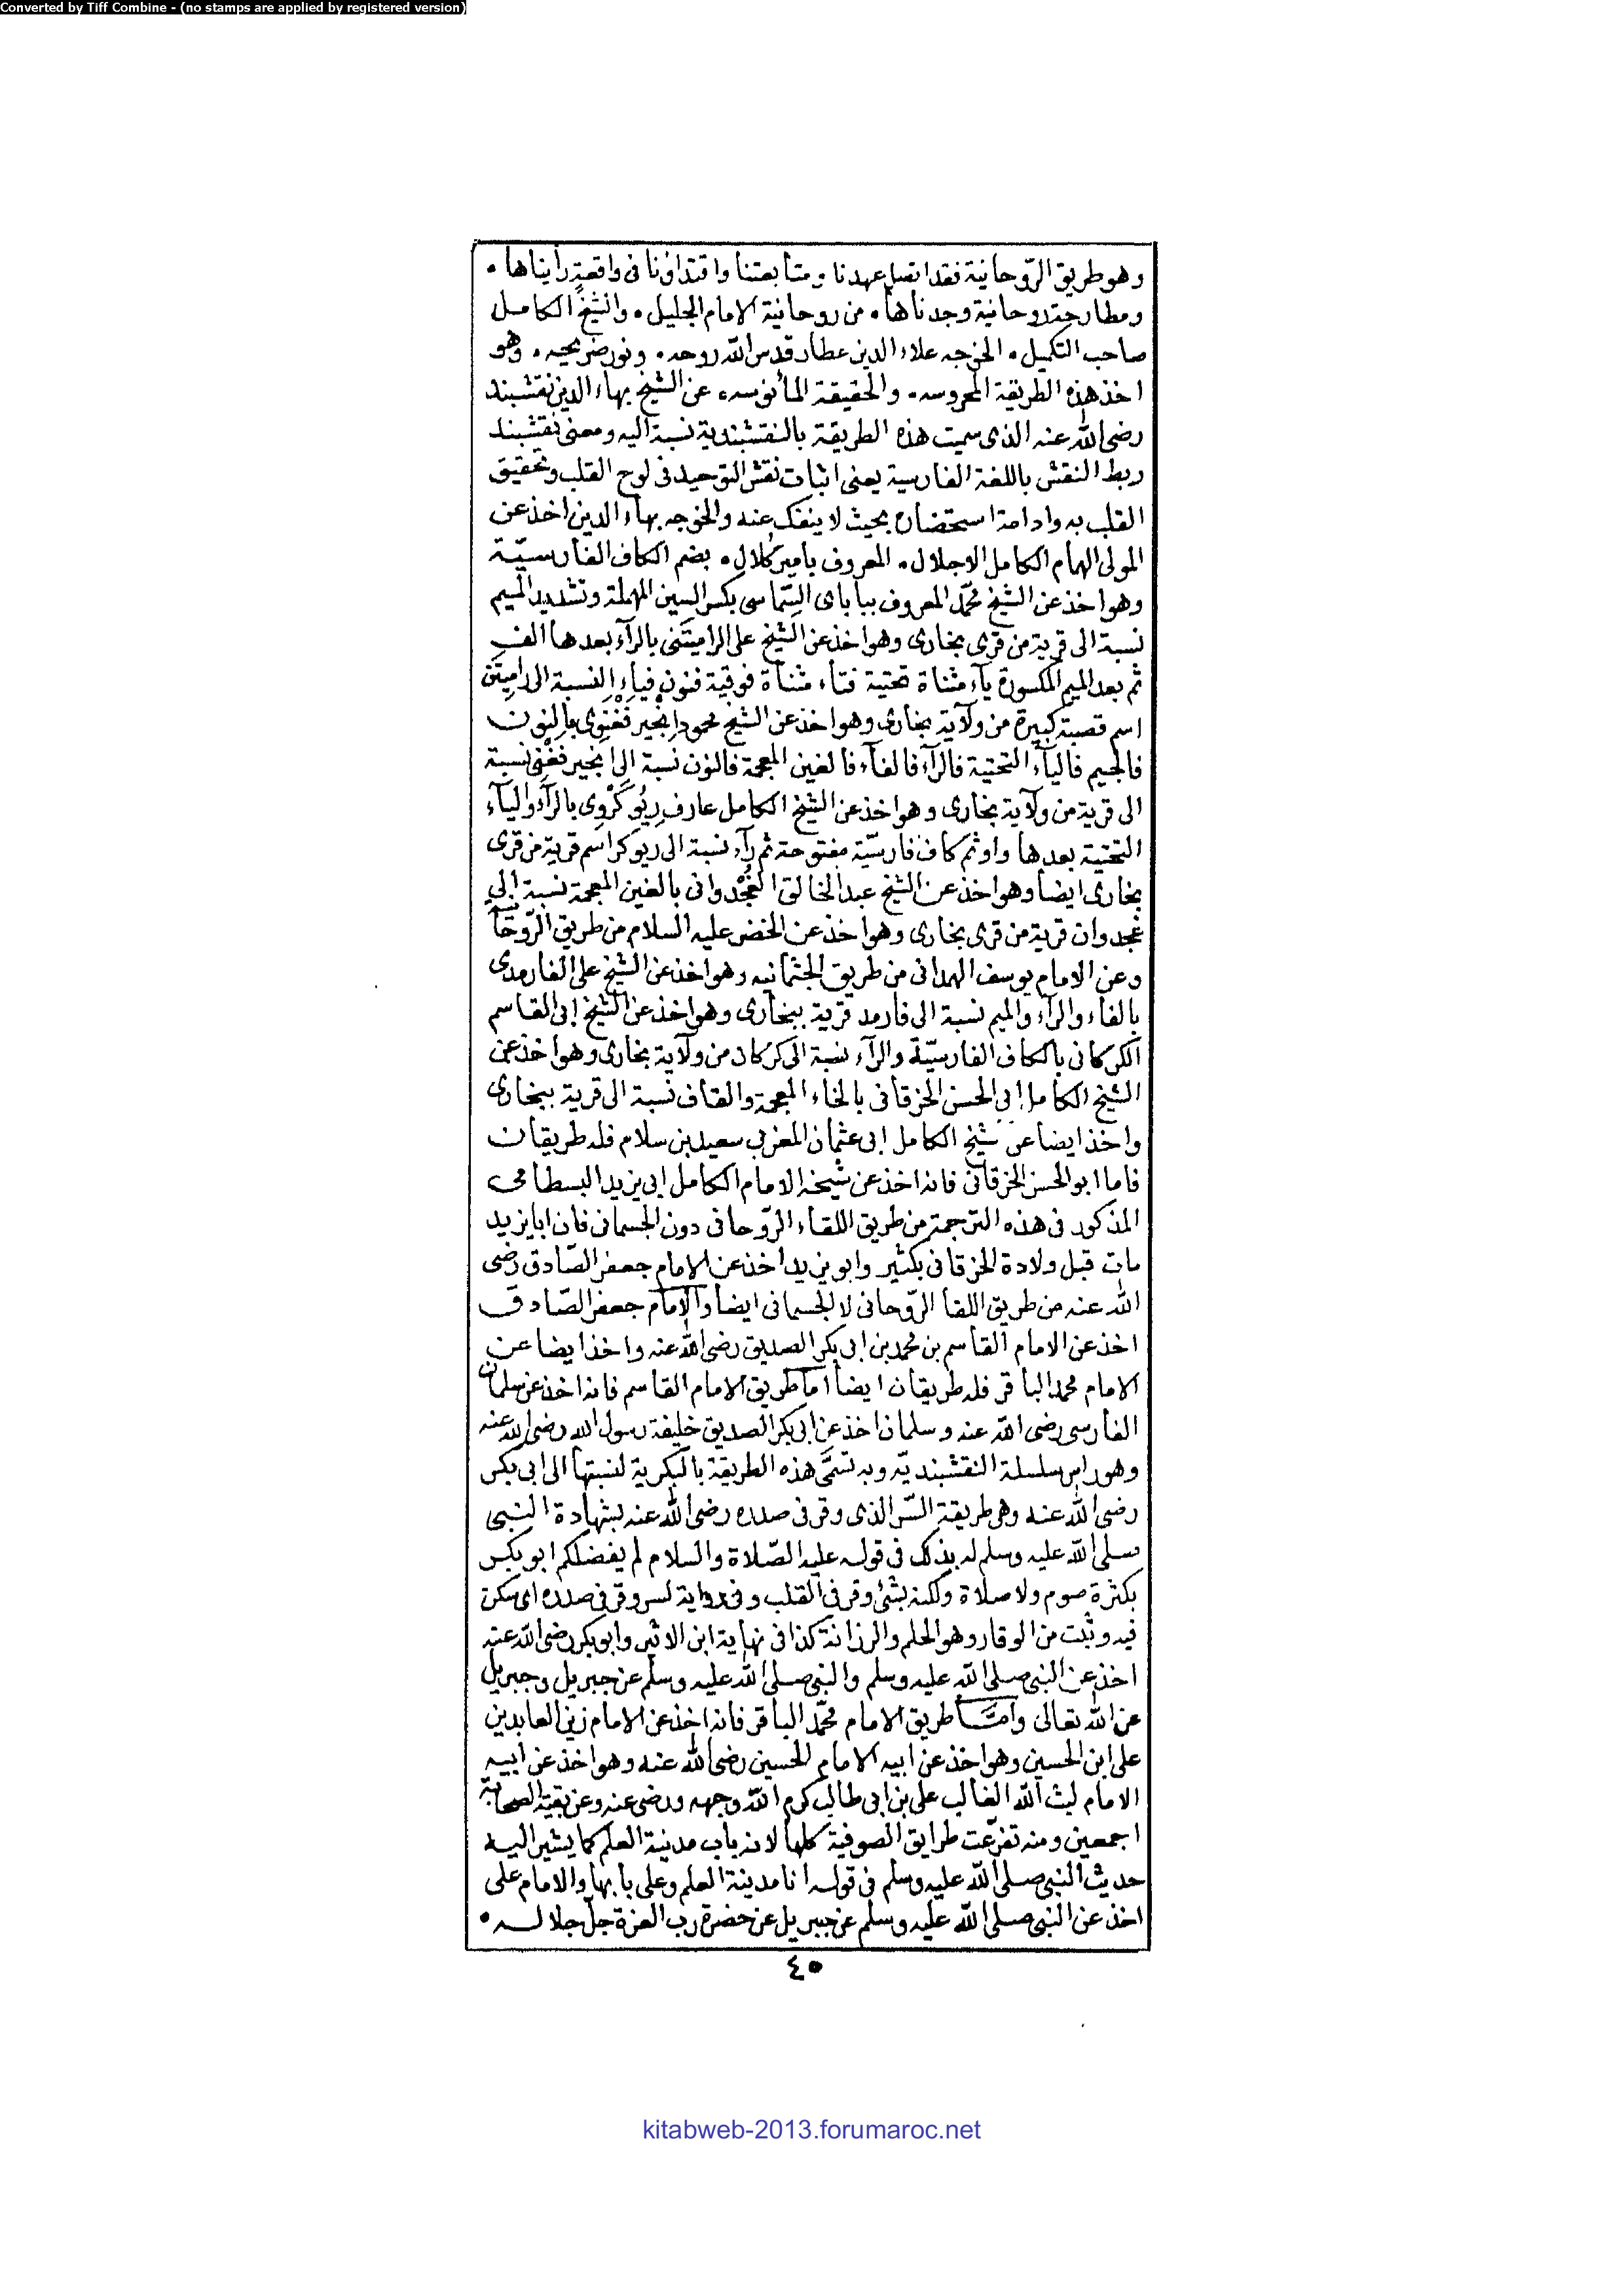 Converted by Tiff Combine - (no stamps are applied by registered version)
وهو طريق الرّوحانية فقد اتصل عهدنا ومتابعتنا واقتداؤنا فى واقعة رأيناها •
ومطارحة روحانية وجدناها • من روحانية الامام الجليل • والشيخ الكامل
صاحب التكميل • الخوجه علاء الدين عطار قدس الله روحه • ونور ضريحه • وهو
اخذ هذه الطريقة المحروسه • والحقيقة المأنوسه • عن الشيخ بهاء الدين نقشبند
رضى الله عنه الذى سميت هذه الطريقة بالنقشبندية نسبة اليه ومعنى نقشبند
ربط النقش باللغة الفارسية يعنى اثبات نقش التوحيد فى لوح القلب وتحقيق
القلب به وادامة استحضاره بحيث لا ينفك عنه والخوجه بهاء الدين اخذ عن
المولى الهمام الكامل الاجلال • المعروف بامير كُلال • بضم الكاف الفارسيّة
وهو اخذ عن الشيخ محمّد المعروف ببا باى السِّماسى بكسر السين المهملة وتشديد الميم
نسبة الى قرية من قرى بخارى وهو اخذ عن الشيخ على الراميتنى بالرآء بعدها الف
ثم بعد الميم المكسورة يآء مثناة تحتية فتاء مثناة فوقية فنون فياء النسبة الى راميتن
اسم قصبة كبيرة من ولآية بخارى وهو اخذ عن الشيخ محمود اِنْجير فَغْنَوِى بالنون
فالجيم فاليآء التحتية فالرآء فالفآء فالغين المعجمة فالنون نسبة الى انجير فغنى نسبة
الى قرية من ولآية بخارى وهو اخذ عن الشيخ الكامل عارف رِيْوَكَرْوِى بالرآء واليآء
التحتية بعدها واو ثم كاف فارسيّة مفتوحة ثم رآء نسبة الى ريوكر اسم قرية من قرى
بخارى ايضا وهو اخذ عن الشيخ عبد الخالق الغُجْدوانى بالغين المعجمة نسبة الى
غجدوان قرية من قرى بخارى وهو اخذ عن الخضر عليه السلام من طريق الرّوحآنية
وعن الامام يوسف الهمدانى من طريق الجثمانيه وهو اخذ عن الشيخ على الفارمدى
بالفاء والرآء والميم نسبة الى فارمد قرية ببخارى وهو اخذ عن الشيخ ابى القاسم
الكركانى بالكاف الفارسيّة والرآء نسبة الى كركان من ولآية بخارى وهو اخذ عن
الشيخ الكامل ابى الحسن الخرقانى بالخاء المعجمة والقاف نسبة الى قرية ببخارى
واخذ ايضا عن شيخ الكامل ابى عثمان المغربى سعيد بن سلام فله طريقان
فاما ابو الحسن الخرقانى فانه اخذ عن شيخه الامام الكامل ابى يزيد البسطامى
المذكور فى هذه الترجمة من طريق اللقاء الرّوحانى دون الجسمانى فان ابا يزيد
مات قبل ولادة الخرقانى بكثير وابو يزيد اخذ عن الامام جعفر الصّادق رضى
الله عنه من طريق اللقا الرّوحانى لا الجسمانى ايضا والامام جعفر الصّادق
اخذ عن الامام القاسم بن محمد بن ابى بكر الصديق رضى الله عنه واخذ ايضا عن
الامام محمد الباقر فله طريقان ايضا اما طريق الامام القاسم فانه اخذ عن سلمان
الفارسى رضى الله عنه وسلمان اخذ عن ابى بكر الصديق خليفة رسول الله رضى الله عنه
وهو راس سلسلة النقشبنديّه وبه تسمَّى هذه الطريقة بالبكرية لنسبتها الى ابى بكر
رضى الله عنه وهى طريقة السّر الذى وقر فى صدره رضى الله عنه بشهادة النبى
صلى الله عليه وسلم له بذلك فى قوله عليه الصّلاة والسلام لم يفضلكم ابو بكر
بكثرة صوم ولا صلاة ولكنه بشئ وقر فى القلب وفى رواية لسر وقر فى صدره اى سكن
فيه وثبت من الوقار وهو الحلم والرزانة كذا فى نهاية ابن الاثير وابو بكر رضى الله عنه
اخذ عن النبى صلى الله عليه وسلم والنبى صلى الله عليه وسلم عن جبريل وجبريل
عن الله تعالى وامّا طريق الامام محمّد الباقر فانه اخذ عن الامام زين العابدين
على ابن الحسين وهو اخذ عن ابيه الامام الحسين رضى الله عنه وهو اخذ عن ابيه
الامام ليث الله الغالب على بن ابى طالب كرم الله وجهه ورضى عنه وعن بقية الصحابة
اجمعين ومنه تفرّعت طرايق الصوفية كلها لانه باب مدينة العلم كما يشير اليه
حديث النبى صلى الله عليه وسلم فى قوله انا مدينة العلم وعلى بابها والامام على
اخذ عن النبى صلى الله عليه وسلم عن جبريل عن حضرة رب العزة جلّ جلاله •
٤٥
kitabweb-2013.forumaroc.net